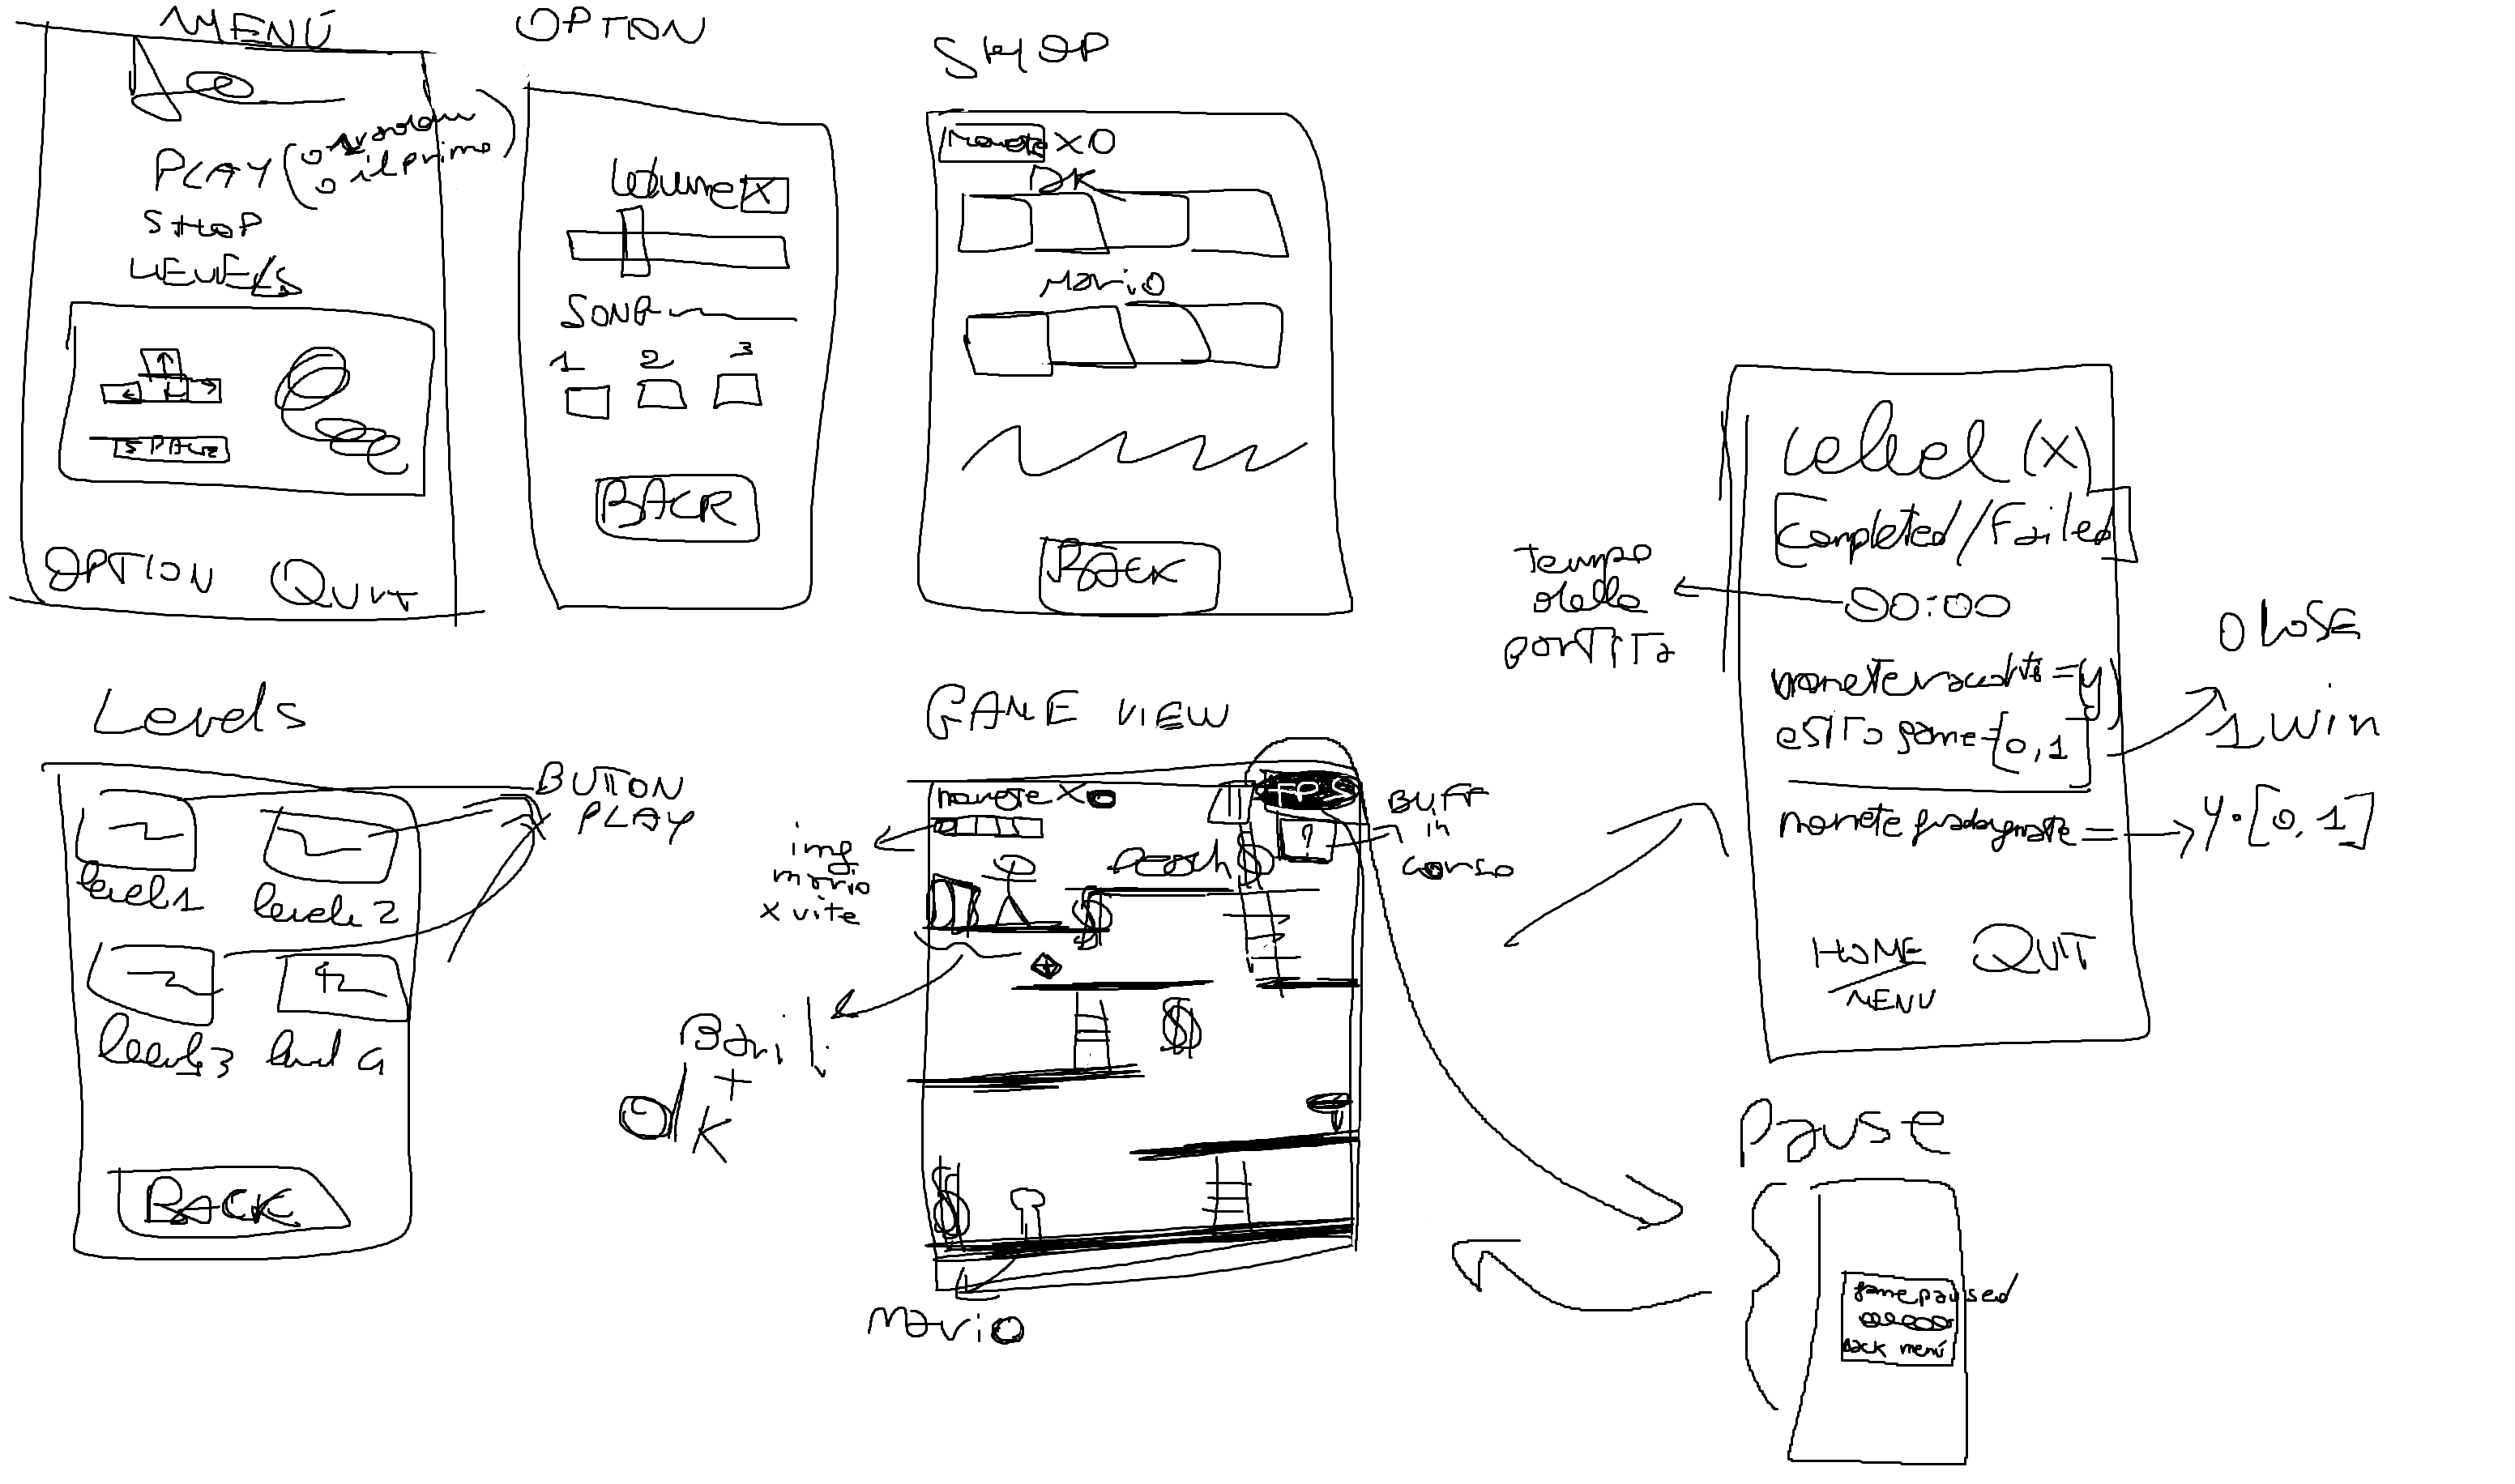 MENÚ
PLAY ( o random
o il primo )
SHOP
LEVELS
SPACE
OPTION QUIT
OPTION
Volume X
SONG
1 2 3
BACK
SHOP
monete X0
DK
MariO
BACK
Level (X)
Completed/Failed
00:00
Tempo
della
partita
monete raccolte = y
esito game = [0,1]
0 LOSE
1 Win
monete guadagnate = y • [0,1]
HOME
MENU
QUIT
Levels
level 1
level 2
level 3
level 4
BACK
BUTTON
PLAY
GAME VIEW
monete X0
FPS
BUFF
in
corso
img
mario
x vite
Peach
$
$
$
$
Barili
+
dK
MariO
Pause
game paused
back menú